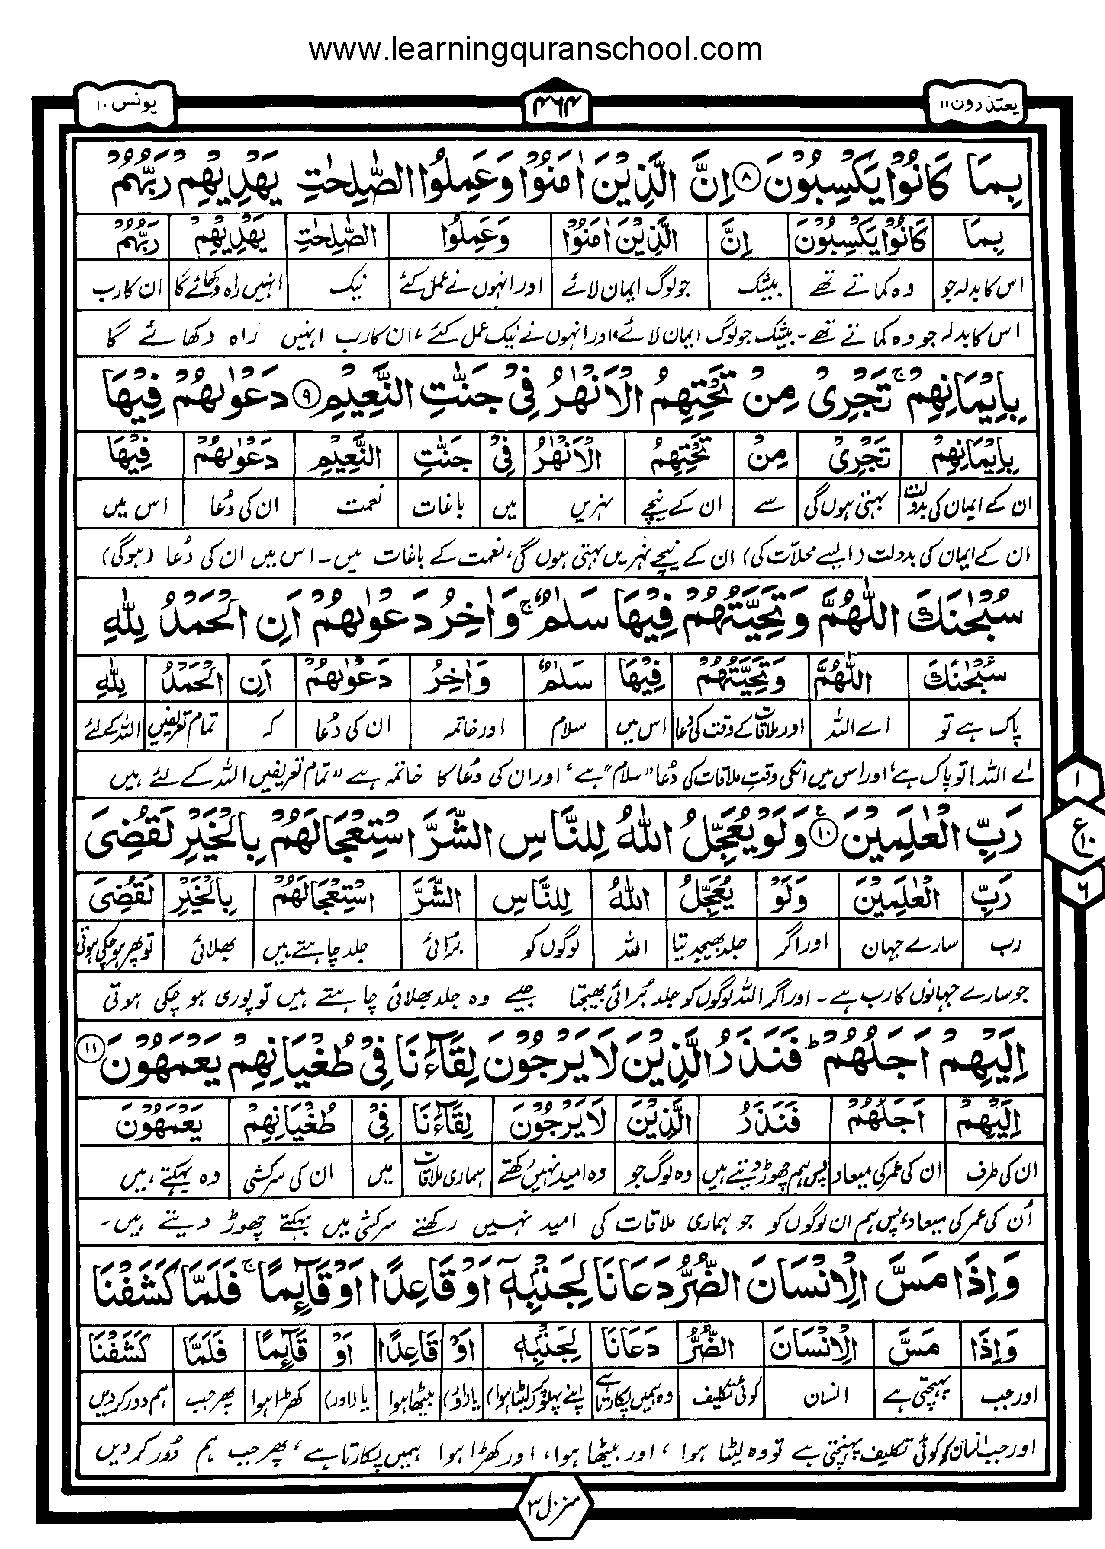 www.learningquranschool.com
یعتذرون ۱۱ ۴۶۴ یونس ۱۰
بِمَا كَانُوْا يَكْسِبُوْنَ ۸ اِنَّ الَّذِيْنَ اٰمَنُوْا وَعَمِلُوا الصّٰلِحٰتِ يَهْدِيْهِمْ رَبُّهُمْ
بِمَا كَانُوْا يَكْسِبُوْنَ اِنَّ الَّذِيْنَ اٰمَنُوْا وَعَمِلُوا الصّٰلِحٰتِ يَهْدِيْهِمْ رَبُّهُمْ
اس کا بدلہ جو وہ کماتے تھے بیشک جو لوگ ایمان لائے اور انہوں نے عمل کئے نیک انہیں راہ دکھائے گا ان کا رب
اس کا بدلہ جو وہ کماتے تھے۔ بیشک جو لوگ ایمان لائے، اور انہوں نے نیک عمل کئے، ان کا رب انہیں راہ دکھائے گا
بِاِيْمَانِهِمْ ۚ تَجْرِىْ مِنْ تَحْتِهِمُ الْاَنْهٰرُ فِىْ جَنّٰتِ النَّعِيْمِ ۹ دَعْوٰىهُمْ فِيْهَا
بِاِيْمَانِهِمْ تَجْرِىْ مِنْ تَحْتِهِمُ الْاَنْهٰرُ فِىْ جَنّٰتِ النَّعِيْمِ دَعْوٰىهُمْ فِيْهَا
ان کے ایمان کی بدولت بہتی ہوں گی سے ان کے نیچے نہریں میں باغات نعمت ان کی دُعا اس میں
ان کے ایمان کی بدولت (ایسے محلات کی) ان کے نیچے نہریں بہتی ہوں گی، نعمت کے باغات میں۔ اس میں ان کی دُعا (ہوگی)
سُبْحٰنَكَ اللّٰهُمَّ وَتَحِيَّتُهُمْ فِيْهَا سَلٰمٌ ۚ وَاٰخِرُ دَعْوٰىهُمْ اَنِ الْحَمْدُ لِلّٰهِ
سُبْحٰنَكَ اللّٰهُمَّ وَتَحِيَّتُهُمْ فِيْهَا سَلٰمٌ وَاٰخِرُ دَعْوٰىهُمْ اَنِ الْحَمْدُ لِلّٰهِ
پاک ہے تو اے اللہ اور ملاقات کے وقت کی دُعا اس میں سلام اور خاتمہ ان کی دُعا کہ تمام تعریفیں اللہ کے لئے
اے اللہ! تو پاک ہے، اور اس میں انکی وقتِ ملاقات کی دُعا "سلام" ہے، اور ان کی دُعا کا خاتمہ ہے "تمام تعریفیں اللہ کے لئے ہیں
رَبِّ الْعٰلَمِيْنَ ۱۰ ع وَلَوْ يُعَجِّلُ اللّٰهُ لِلنَّاسِ الشَّرَّ اسْتِعْجَالَهُمْ بِالْخَيْرِ لَقُضِىَ
۱ ع ۱۰ ۶
رَبِّ الْعٰلَمِيْنَ وَلَوْ يُعَجِّلُ اللّٰهُ لِلنَّاسِ الشَّرَّ اسْتِعْجَالَهُمْ بِالْخَيْرِ لَقُضِىَ
رب سارے جہان اور اگر جلد بھیجدیتا اللہ لوگوں کو برائی جلد چاہتے ہیں بھلائی تو پھر ہو چکی ہوتی
جو سارے جہانوں کا رب ہے۔ اور اگر اللہ لوگوں کو جلد بُرائی بھیجتا جیسے وہ جلد بھلائی چاہتے ہیں تو پوری ہو چکی ہوتی
اِلَيْهِمْ اَجَلُهُمْ ؕ فَنَذَرُ الَّذِيْنَ لَا يَرْجُوْنَ لِقَآءَنَا فِىْ طُغْيَانِهِمْ يَعْمَهُوْنَ ۱۱
اِلَيْهِمْ اَجَلُهُمْ فَنَذَرُ الَّذِيْنَ لَا يَرْجُوْنَ لِقَآءَنَا فِىْ طُغْيَانِهِمْ يَعْمَهُوْنَ
ان کی طرف ان کی عمر کی میعاد پس ہم چھوڑ دیتے ہیں وہ لوگ جو وہ امید نہیں رکھتے ہماری ملاقات میں ان کی سرکشی وہ بہکتے ہیں
اُن کی عمر کی میعاد، پس ہم ان لوگوں کو جو ہماری ملاقات کی امید نہیں رکھتے سرکشی میں بہکتے چھوڑ دیتے ہیں۔
وَاِذَا مَسَّ الْاِنْسَانَ الضُّرُّ دَعَانَا لِجَنْۢبِهٖۤ اَوْ قَاعِدًا اَوْ قَآئِمًا ۚ فَلَمَّا كَشَفْنَا
وَاِذَا مَسَّ الْاِنْسَانَ الضُّرُّ دَعَانَا لِجَنْۢبِهٖۤ اَوْ قَاعِدًا اَوْ قَآئِمًا فَلَمَّا كَشَفْنَا
اور جب پہنچتی ہے انسان کوئی تکلیف وہ ہمیں پکارتا ہے اپنے پہلو پر (لیٹا ہوا) یا (اور) بیٹھا ہوا یا (اور) کھڑا ہوا پھر جب ہم دور کردیں
اور جب انسان کو کوئی تکلیف پہنچتی ہے تو وہ لیٹا ہوا، اور بیٹھا ہوا، اور کھڑا ہوا ہمیں پکارتا ہے، پھر جب ہم دُور کردیں
منزل ۳